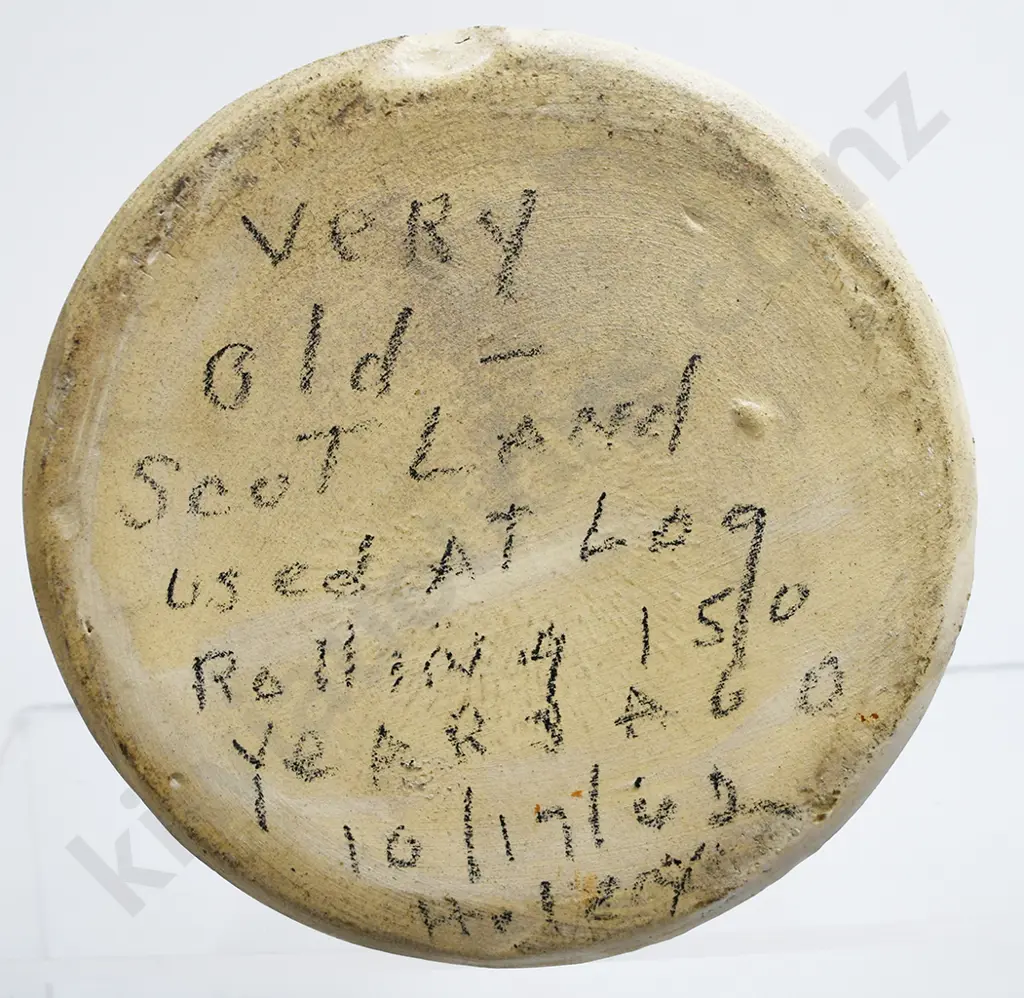 VeRy
old –
ScoTLANd
used AT Log
Rolling 150
YeARS AGO
10/17/62